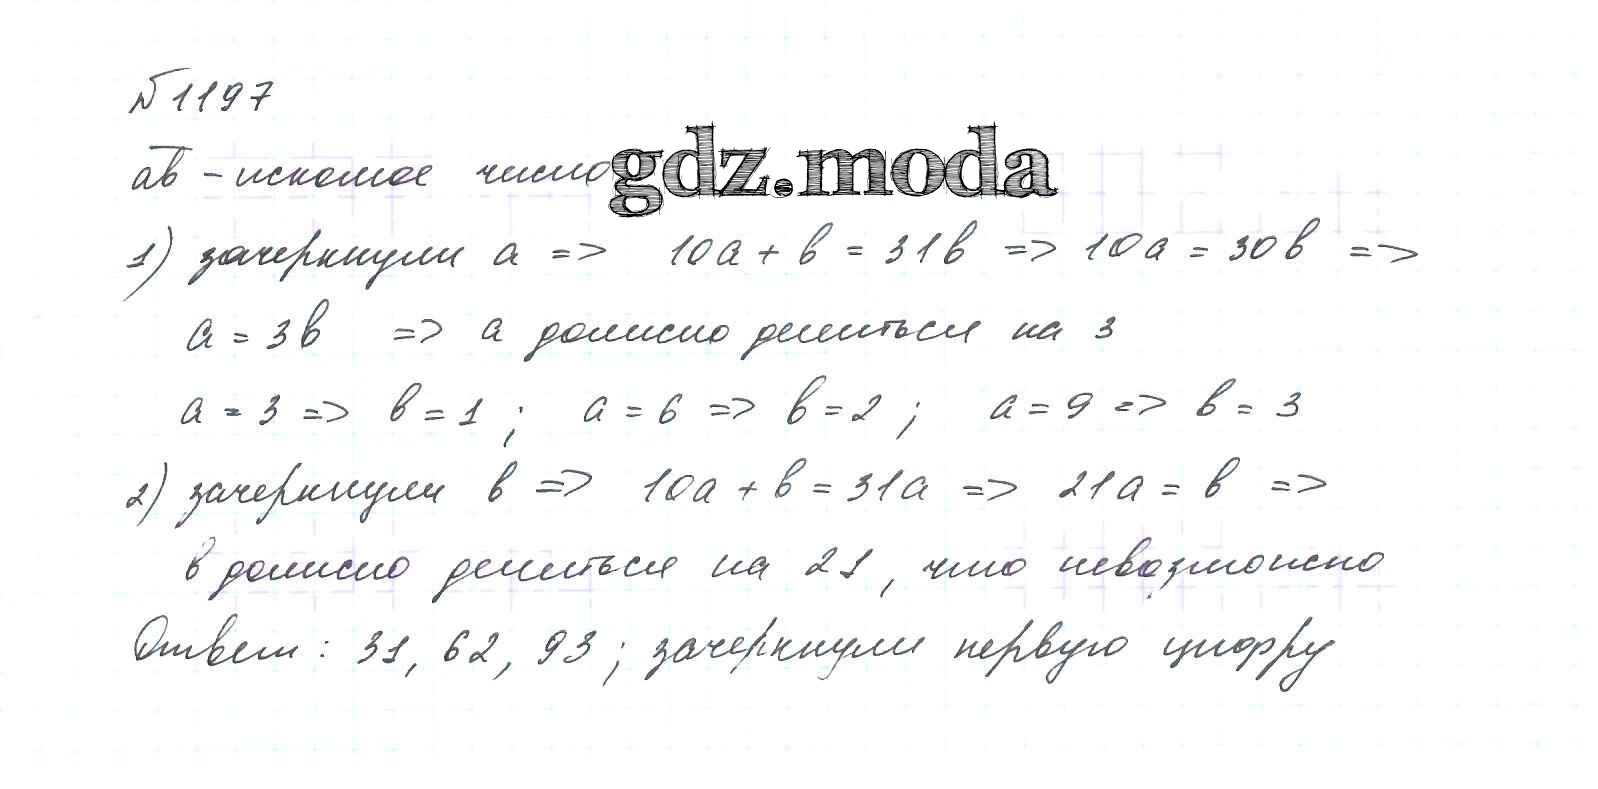 №1197
ав - искомое число
gdz.moda
1) зачеркнули а => 10а + в = 31в => 10а = 30в =>
а = 3в => а должно делиться на 3
а = 3 => в = 1 ; а = 6 => в = 2 ; а = 9 => в = 3
2) зачеркнули в => 10а + в = 31а => 21а = в =>
в должно делиться на 21, что невозможно
Ответ: 31, 62, 93 ; зачеркнули первую цифру